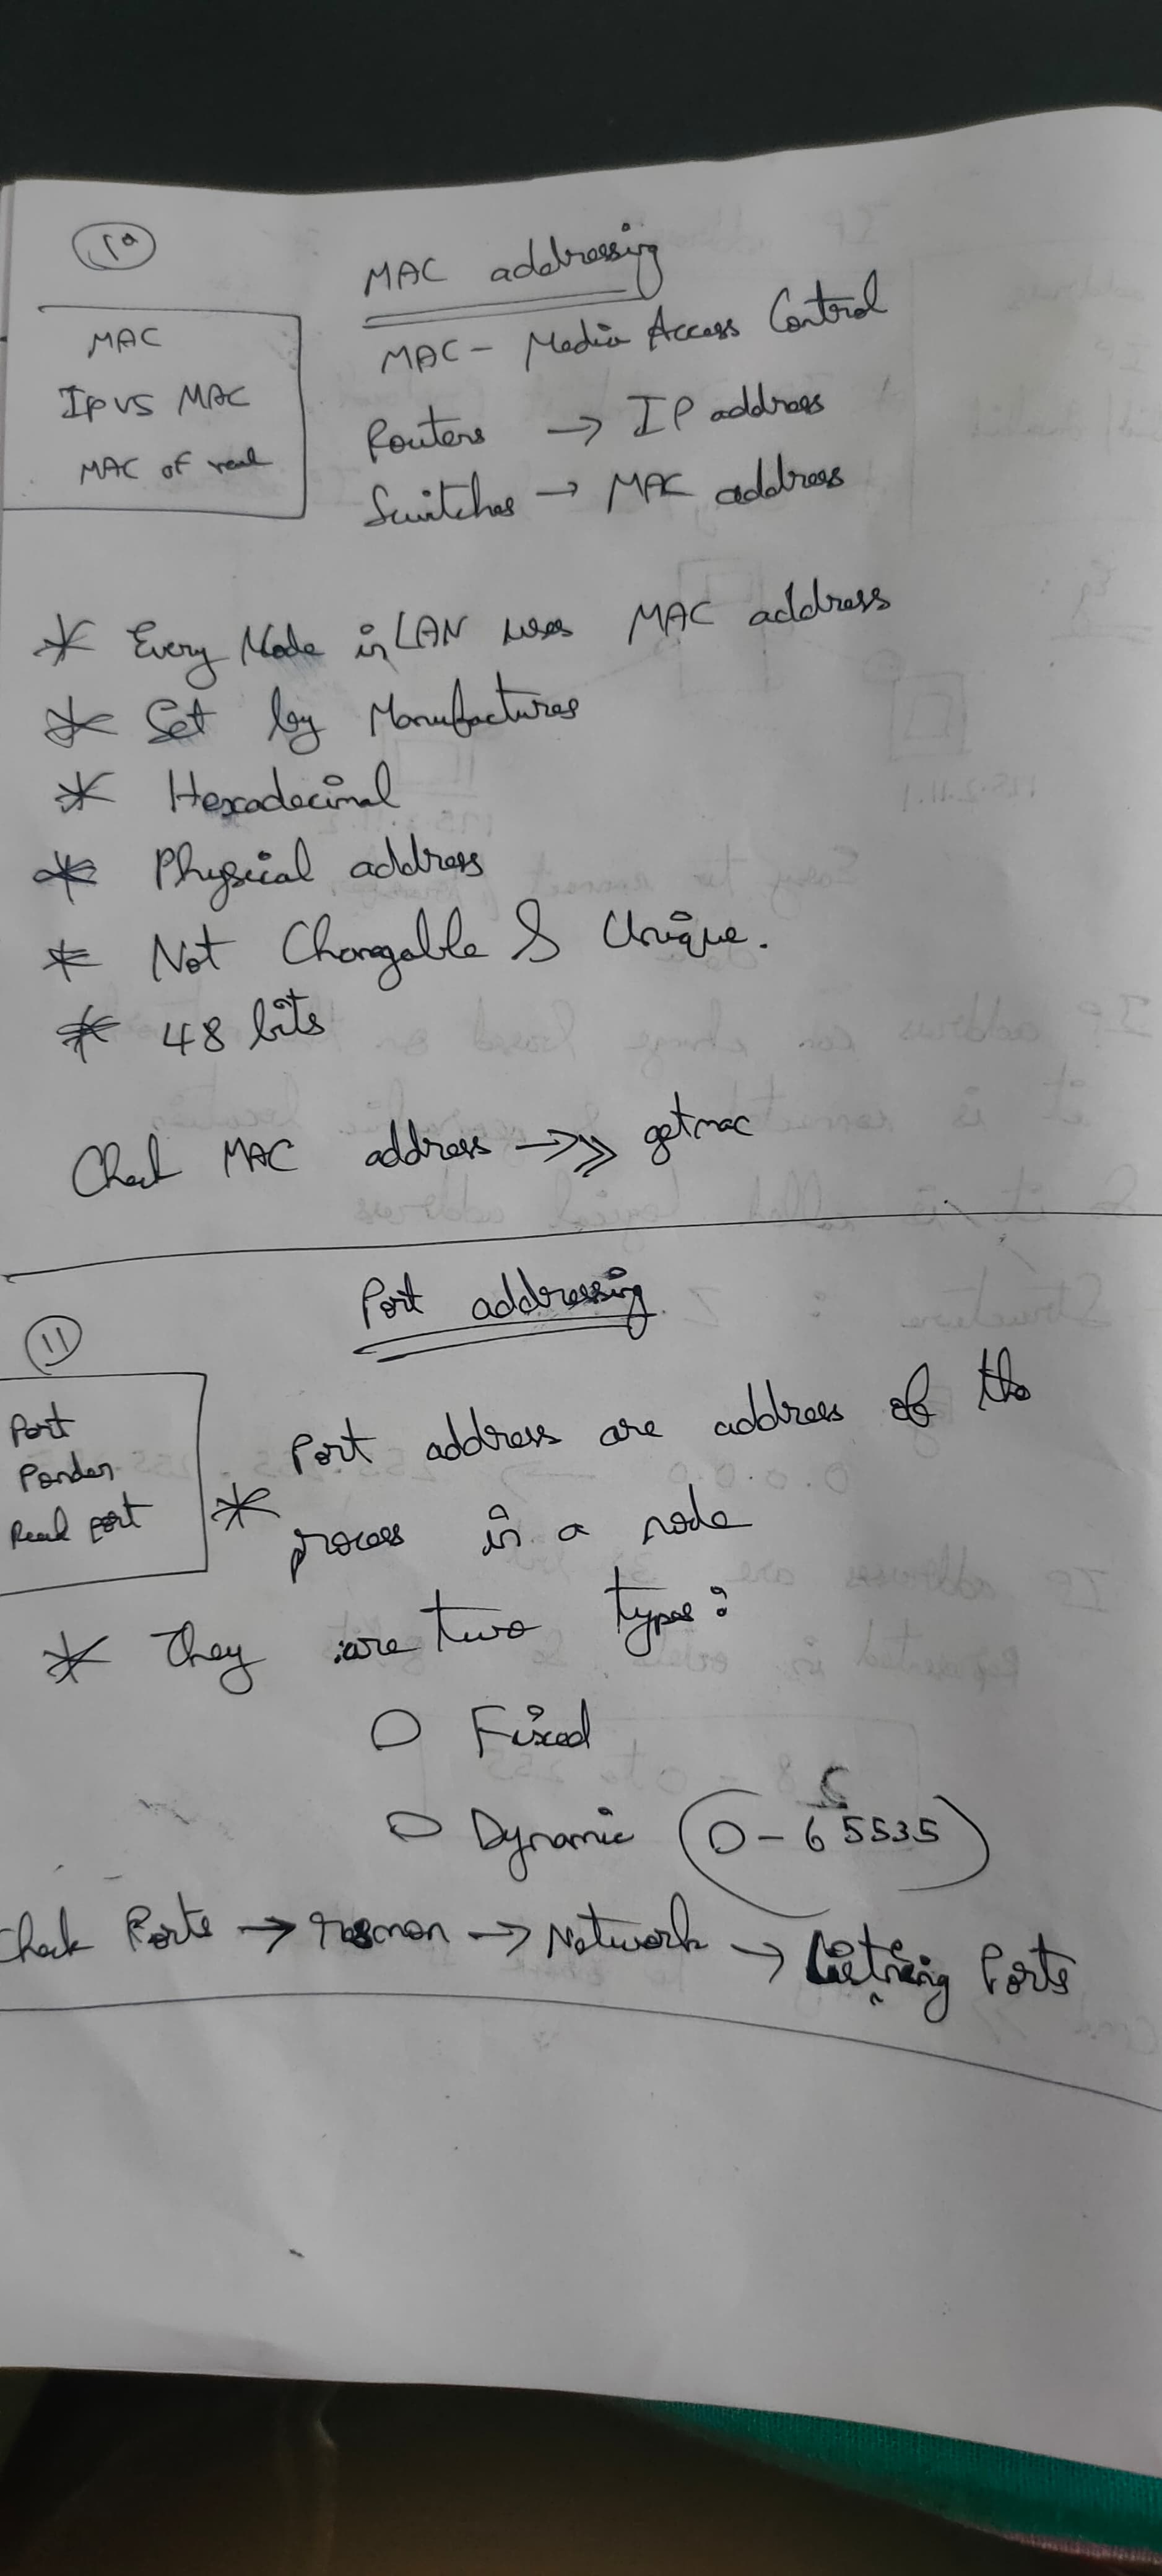 10
MAC addressing
MAC
IP vs MAC
MAC of real
MAC - Media Access Control
Routers → IP address
Switches → MAC address
* Every Node in LAN uses MAC address
* Set by Manufactures
* Hexadecimal
* Physical address
* Not Changable & Unique.
* 48 bits
Check MAC address →>> getmac
Port addressing
11
Port
Real port
* Port address are address of the
process in a node
* They are two types:
O Fixed
O Dynamic (0 - 65535)
Check Ports → resmon → Network → Listning Ports